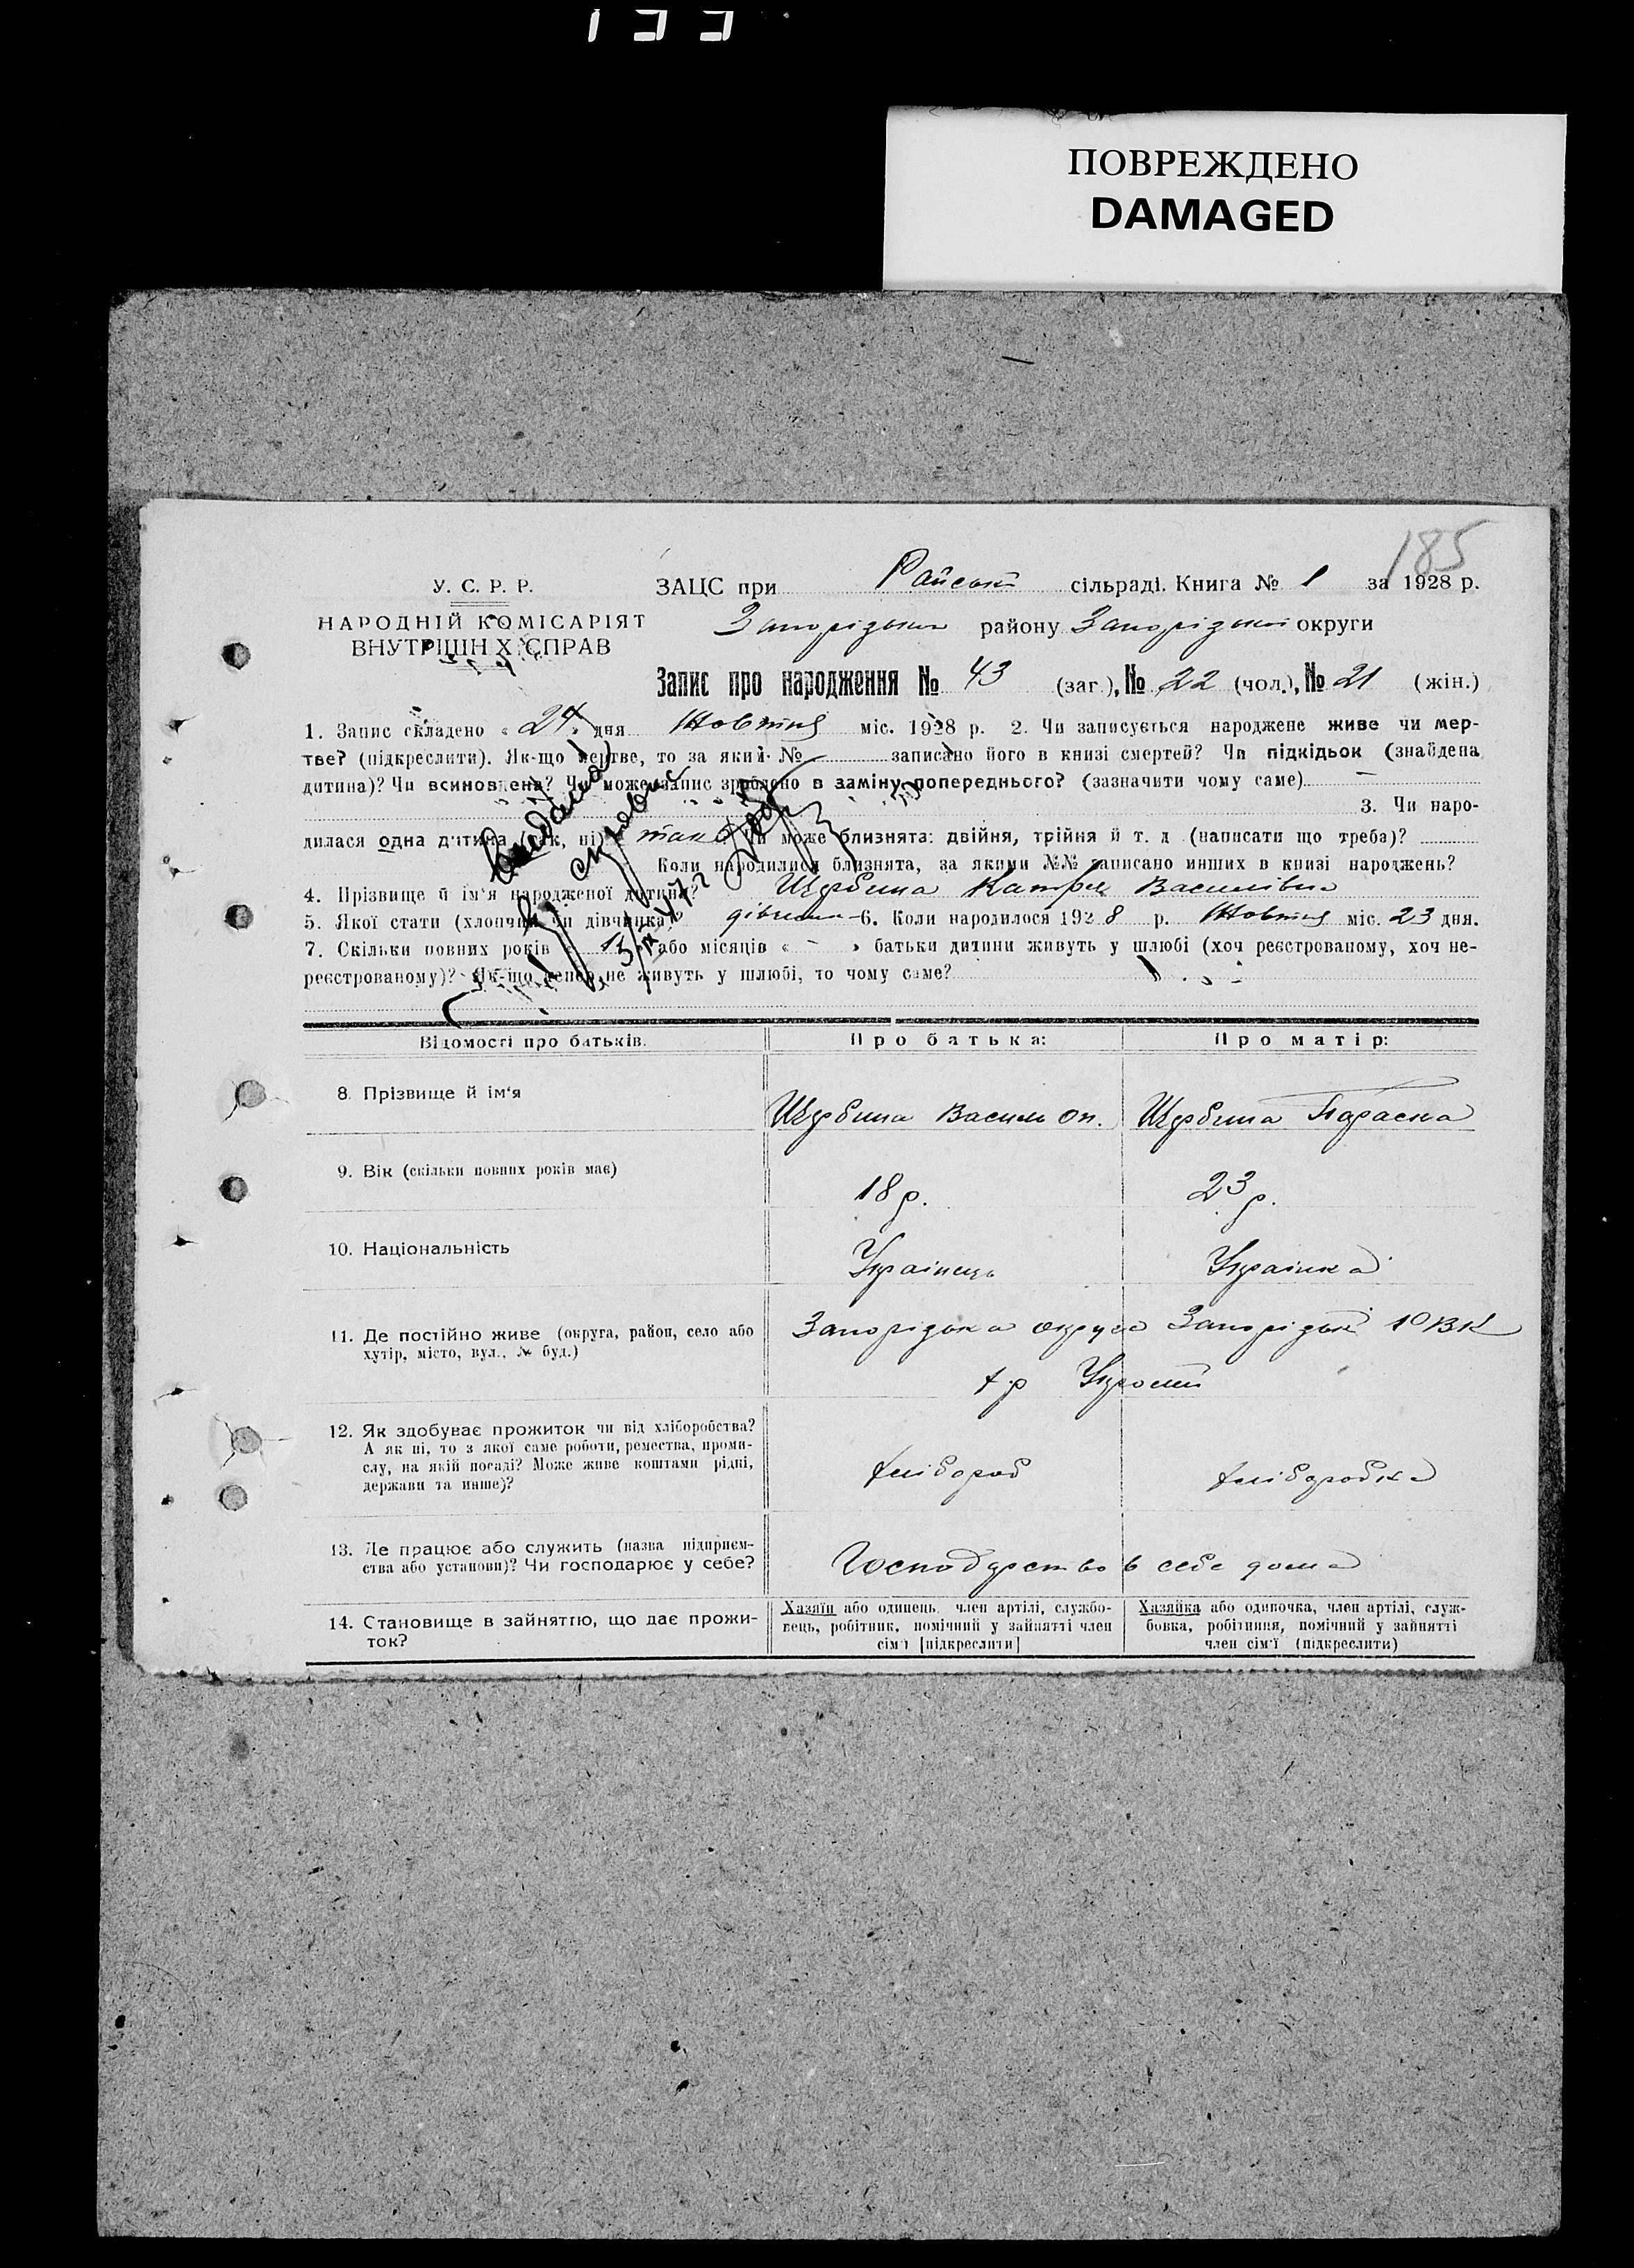 133
ПОВРЕЖДЕНО
DAMAGED
185
У. С. Р. Р.
НАРОДНІЙ КОМІСАРІЯТ
ВНУТРІШН Х СПРАВ
ЗАЦС при Райській сільраді. Книга № 1 за 1928 р.
Запорізького району Запорізької округи
Запис про народження № 43 (заг.), № 22 (чол.), № 21 (жін.)
1. Запис складено « 24 » дня Жовтня міс. 1928 р. 2. Чи записується народжене живе чи мер-
тве? (підкреслити). Як-що мертве, то за яким № записано його в книзі смертей? Чи підкідьок (знайдена
дитина)? Чи всиновлена? Чи може запис зроблено в заміну попереднього? (зазначити чому саме) —
3. Чи наро-
дилася одна дитина (так, ні) « так » Чи може близнята: двійня, трійня й т. д (написати що треба)?
Коли народилися близнята, за якими №№ записано инших в книзі народжень?
4. Прізвище й ім'я народженої дитини? Щербина Василівна
5. Якої стати (хлопчик чи дівчинка)? дівчина 6. Коли народилося 1928 р. Жовтня міс. 23 дня.
7. Скільки повних років « » або місяців « – » батьки дитини живуть у шлюбі (хоч реєстрованому, хоч не-
реєстрованому)? Як-що тепер не живуть у шлюбі, то чому саме?
Відомості про батьків.
Про батька:
Про матір:
8. Прізвище й ім'я
Щербина Василь Оп.
Щербина Параска
9. Вік (скільки повних років має)
18 р.
23 р.
10. Національність
Українець
Українка
11. Де постійно живе (округа, район, село або
хутір, місто, вул., № буд.)
Запорізька округа Запорізький РВК
х-р
12. Як здобуває прожиток чи від хліборобства?
А як ні, то з якої саме роботи, ремества, проми-
слу, на якій посаді? Може живе коштами рідні,
держави та инше)?
хлібороб
хліборобка
13. Де працює або служить (назва підприєм-
ства або установи)? Чи господарює у себе?
Господарство в себе дома
14. Становище в зайняттю, що дає прожи-
ток?
Хазяїн або одинець, член артілі, службо-
вець, робітник, помічний у зайнятті член
сім'ї [підкреслити]
Хазяйка або одиночка, член артілі, служ-
бовка, робітниця, помічний у зайнятті
член сім'ї (підкреслити)